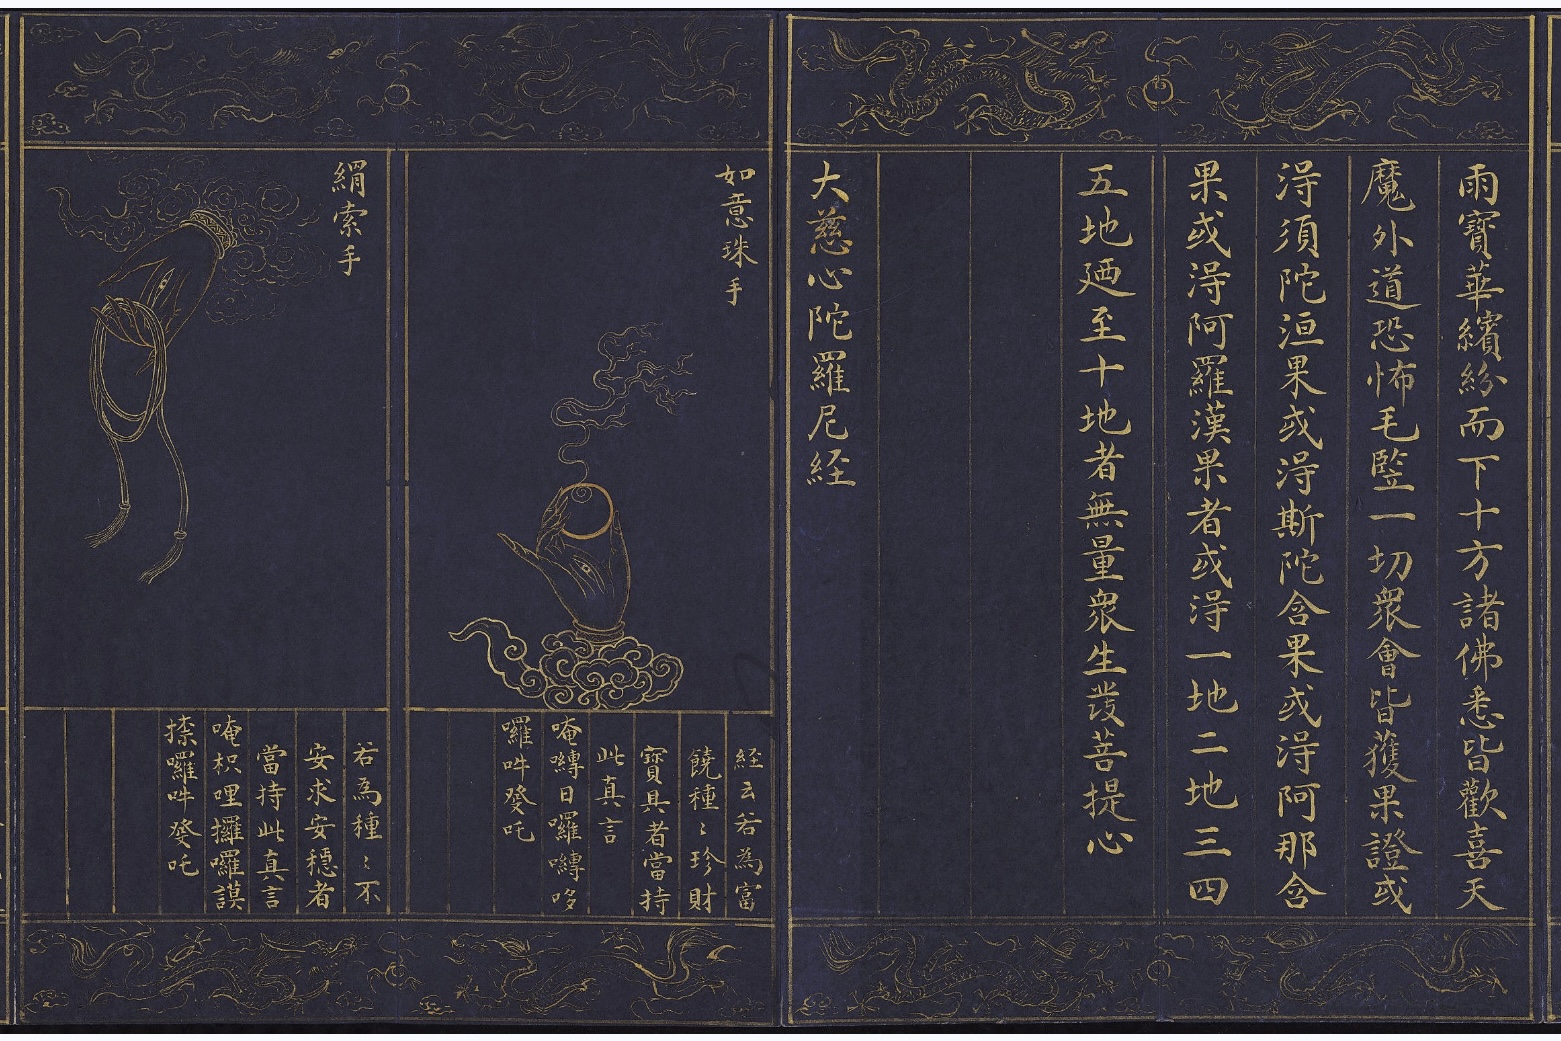 雨寶華繽紛而下十方諸佛悉皆歡喜天
魔外道恐怖毛竪一切衆會皆獲果證或
淂須陀洹果或淂斯陀含果或淂阿那含
果或淂阿羅漢果者或淂一地二地三四
五地廼至十地者無量衆生發菩提心
大慈心陀羅尼経
如意珠手
経云若為富
饒種〻珍財
寳具者當持
此真言
唵嚩日囉嚩哆
囉吽癹吒
羂索手
若為種〻不
安求安穩者
當持此真言
唵枳哩攞囉謨
捺囉吽癹吒